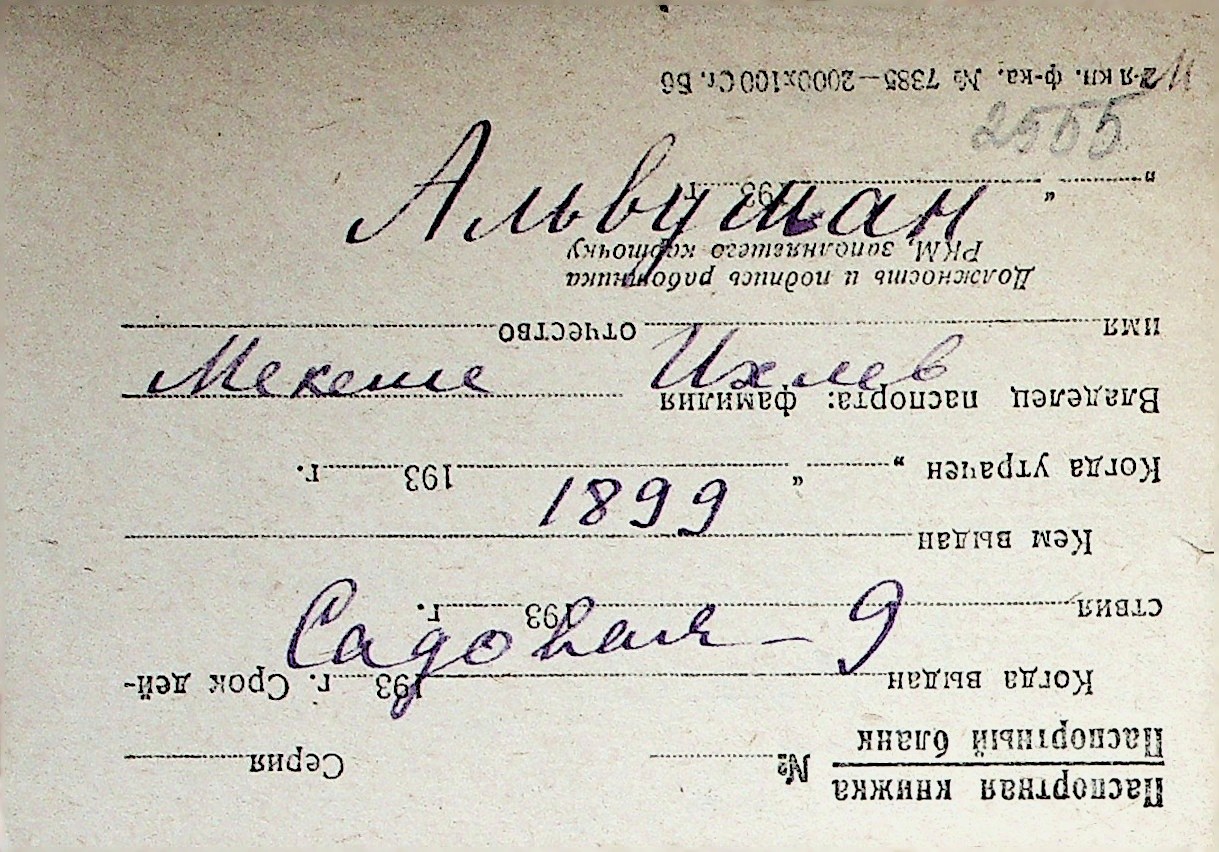 Альвушан
Мекеше Ихлев
1899
Садовая - 9
2555
Паспортная книжка
Паспортный бланк
№ Серия
Когда выдан 193 г. Срок дей-
ствия 193 г.
Кем выдан
Когда утрачен „ “ 193 г.
Владелец паспорта: фамилия
имя отчество
Должность и подпись работника
РКМ, заполнявшего карточку
„ “ 193 г.
2-я кн. ф-ка. № 7385—2000х100 Ст. Б6